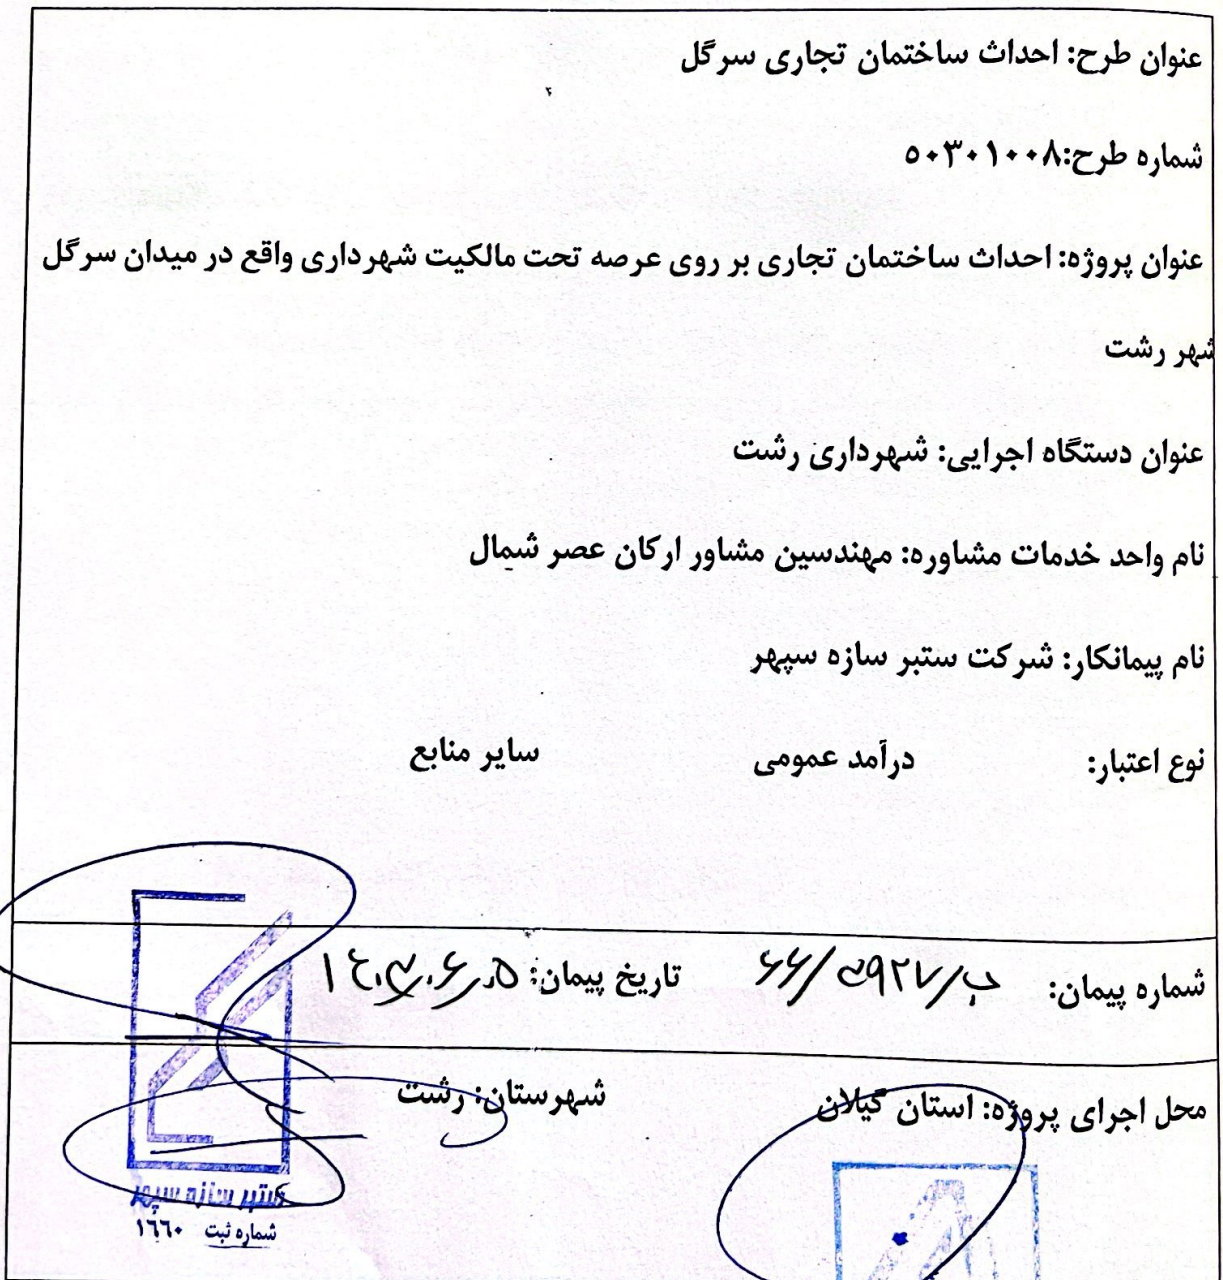 عنوان طرح: احداث ساختمان تجاری سرگل
شماره طرح:۵۰۳۰۱۰۰۸
عنوان پروژه: احداث ساختمان تجاری بر روی عرصه تحت مالکیت شهرداری واقع در میدان سرگل
شهر رشت
عنوان دستگاه اجرایی: شهرداری رشت
نام واحد خدمات مشاوره: مهندسین مشاور ارکان عصر شمال
نام پیمانکار: شرکت ستبر سازه سپهر
نوع اعتبار: درآمد عمومی سایر منابع
شماره پیمان: تاریخ پیمان:
محل اجرای پروژه: استان گیلان شهرستان: رشت
ستبر سازه سپهر
شماره ثبت ۱٦٦۰